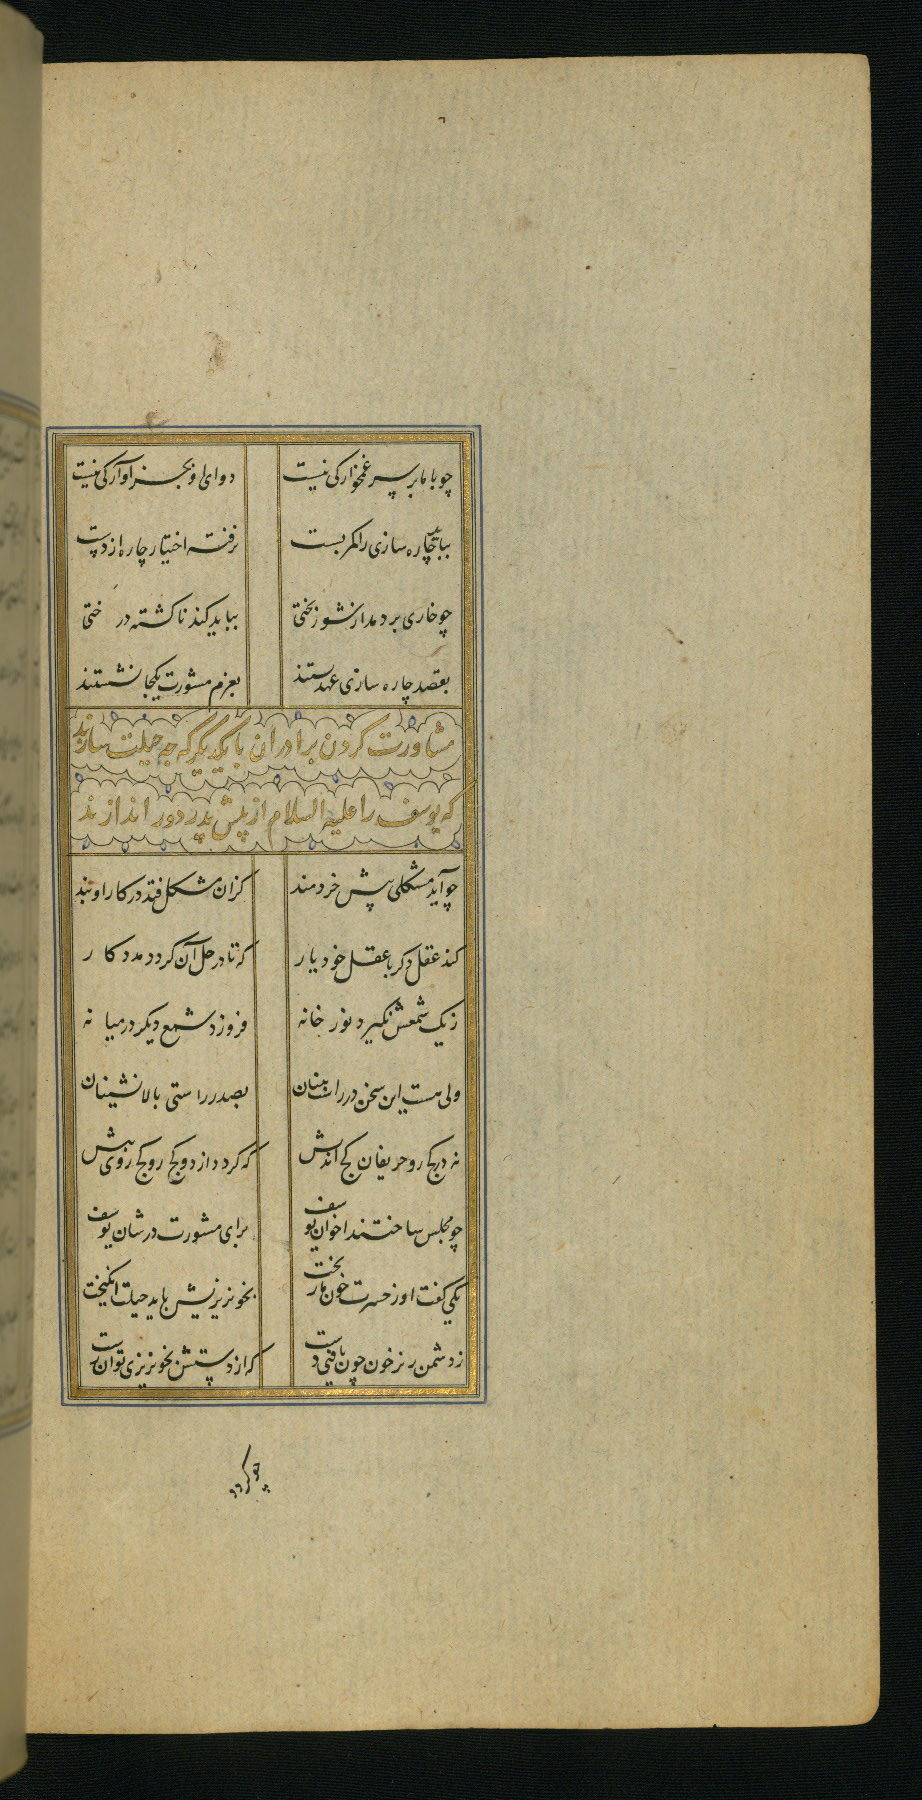 چو با ما بر سر غمخوارکی نیست دوای او بجز آوارکی نیست
بباید چاره سازی را کمر بست نرفته اختیار چاره از دست
چو خاری بردمد از شور بختی بباید کند ناکشته درختی
بقصد چاره سازی عهد بستند بعزم مشورت یکجا نشستند
مشاورت کردن برادران با یکدیگر که چه حیلت سازند
که یوسف را علیه السلام از پیش پدر دور اندازند
چو آید مشکلی پیش خردمند کزان مشکل فتد در کار او بند
کند عقل دکر با عقل خود یار که تا در حل آن کردد مددکار
ز یک شمعش نکیرد نور خانه فروزد شمع دیکر در میانه
ولی هست این سخن در راست بینان بصدر راستی بالا نشینان
نه در کج رو حریفان کج اندیش که کردد از دو کج رو کج روی بیش
چو مجلس ساختند اخوان یوسف برای مشورت در شان یوسف
یکی کفت او ز حسرت خون ما ریخت بخونریزیش باید حیلت انکیخت
ز دشمن ریز خون چون یافتی دست که از دستش بخونریزی توان رست
چو کردد